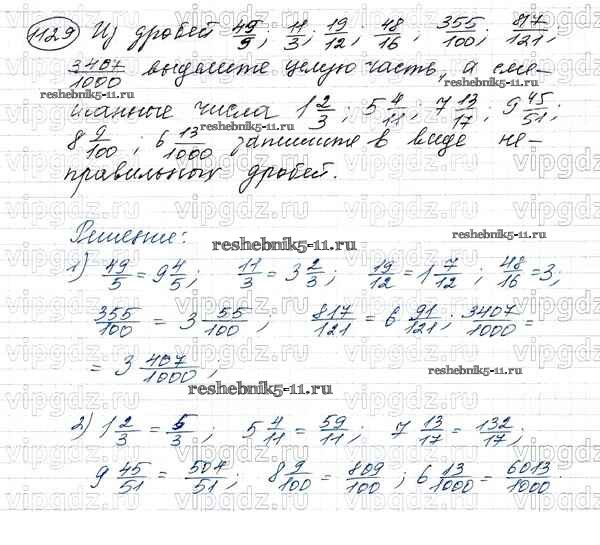 1129 Из дробей 49/9; 11/3; 19/12; 48/16; 355/100; 817/121;
3407/1000 выделите целую часть, а сме-
шанные числа 1 2/3; 5 4/11; 7 13/17; 9 45/51;
8 9/100; 6 13/1000 запишите в виде не-
правильных дробей.
Решение:
1) 49/5 = 9 4/5; 11/3 = 3 2/3; 19/12 = 1 7/12; 48/16 = 3;
355/100 = 3 55/100; 817/121 = 6 91/121; 3407/1000 =
= 3 407/1000;
2) 1 2/3 = 5/3; 5 4/11 = 59/11; 7 13/17 = 132/17;
9 45/51 = 504/51; 8 9/100 = 809/100; 6 13/1000 = 6013/1000.
reshebnik5-11.ru
vipgdz.ru